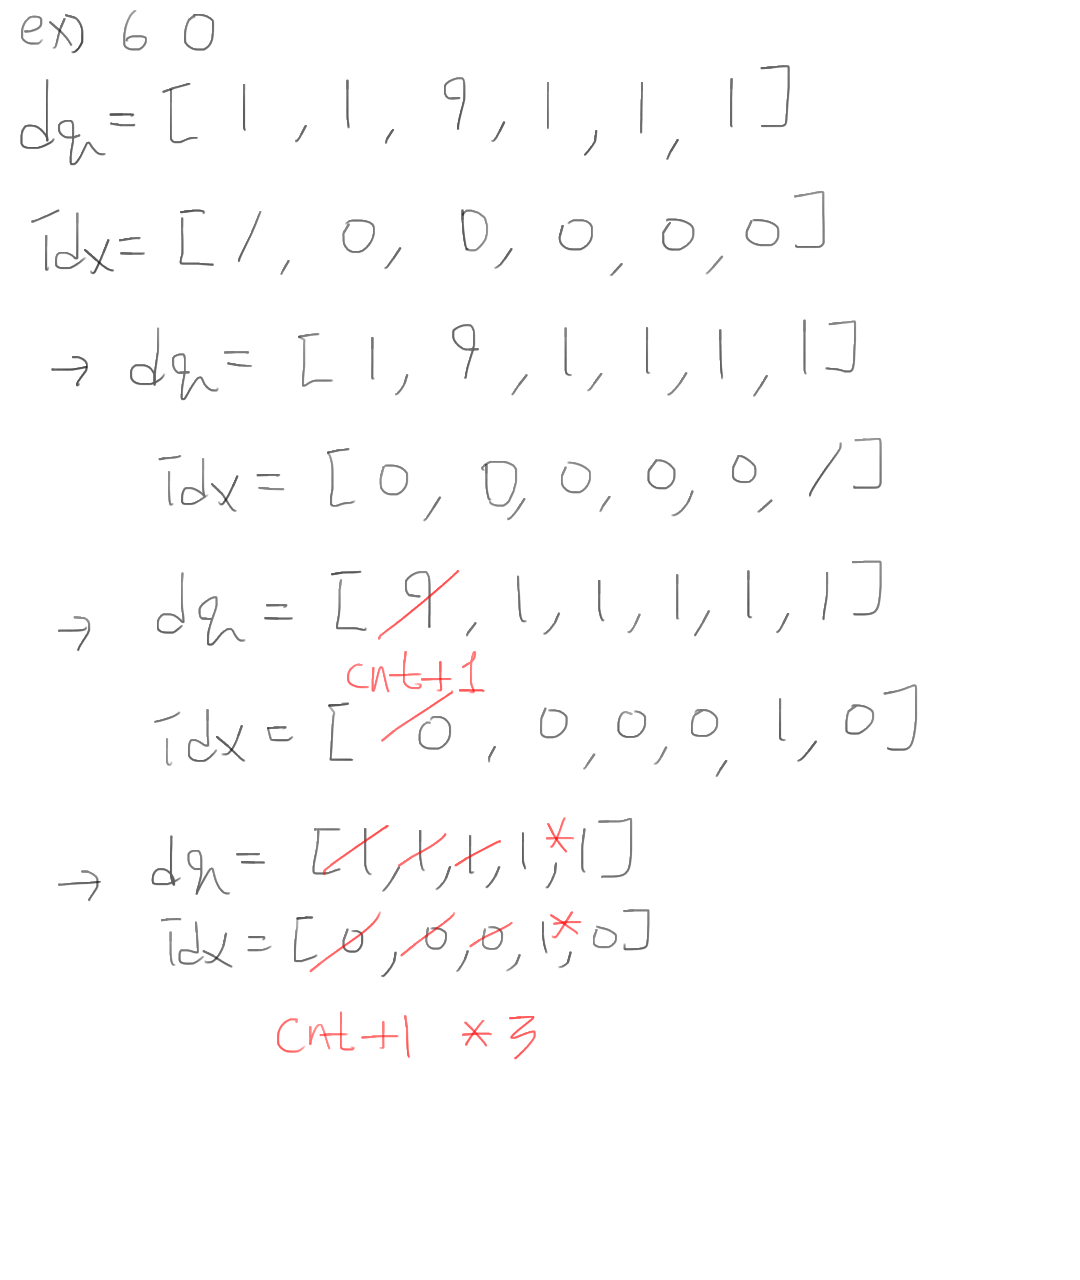 ex) 6 0
dq = [ 1 , 1 , 9 , 1 , 1 , 1 ]
idx = [ 1 , 0 , 0 , 0 , 0 , 0 ]
→ dq = [ 1 , 9 , 1 , 1 , 1 , 1 ]
idx = [ 0 , 0 , 0 , 0 , 0 , 1 ]
→ dq = [ 9 , 1 , 1 , 1 , 1 , 1 ]
cnt+1
idx = [ 0 , 0 , 0 , 0 1 , 0 ]
→ dq = [ 1 , 1 , 1 , 1 , * 1 ]
idx = [ 0 , 0 , 0 , 1 , * 0 ]
cnt+1 * 3